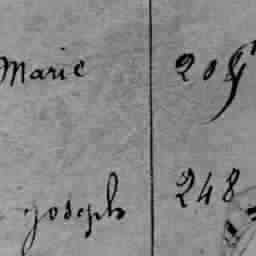 Marie 209
Joseph 248